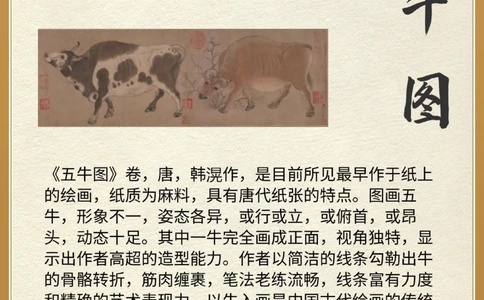 牛图
《五牛图》卷，唐，韩滉作，是目前所见最早作于纸上
的绘画，纸质为麻料，具有唐代纸张的特点。图画五
牛，形象不一，姿态各异，或行或立，或俯首，或昂
头，动态十足。其中一牛完全画成正面，视角独特，显
示出作者高超的造型能力。作者以简洁的线条勾勒出牛
的骨骼转折，筋肉缠裹，笔法老练流畅，线条富有力度
和精确的艺术表现力。以牛入画是中国古代绘画的传统